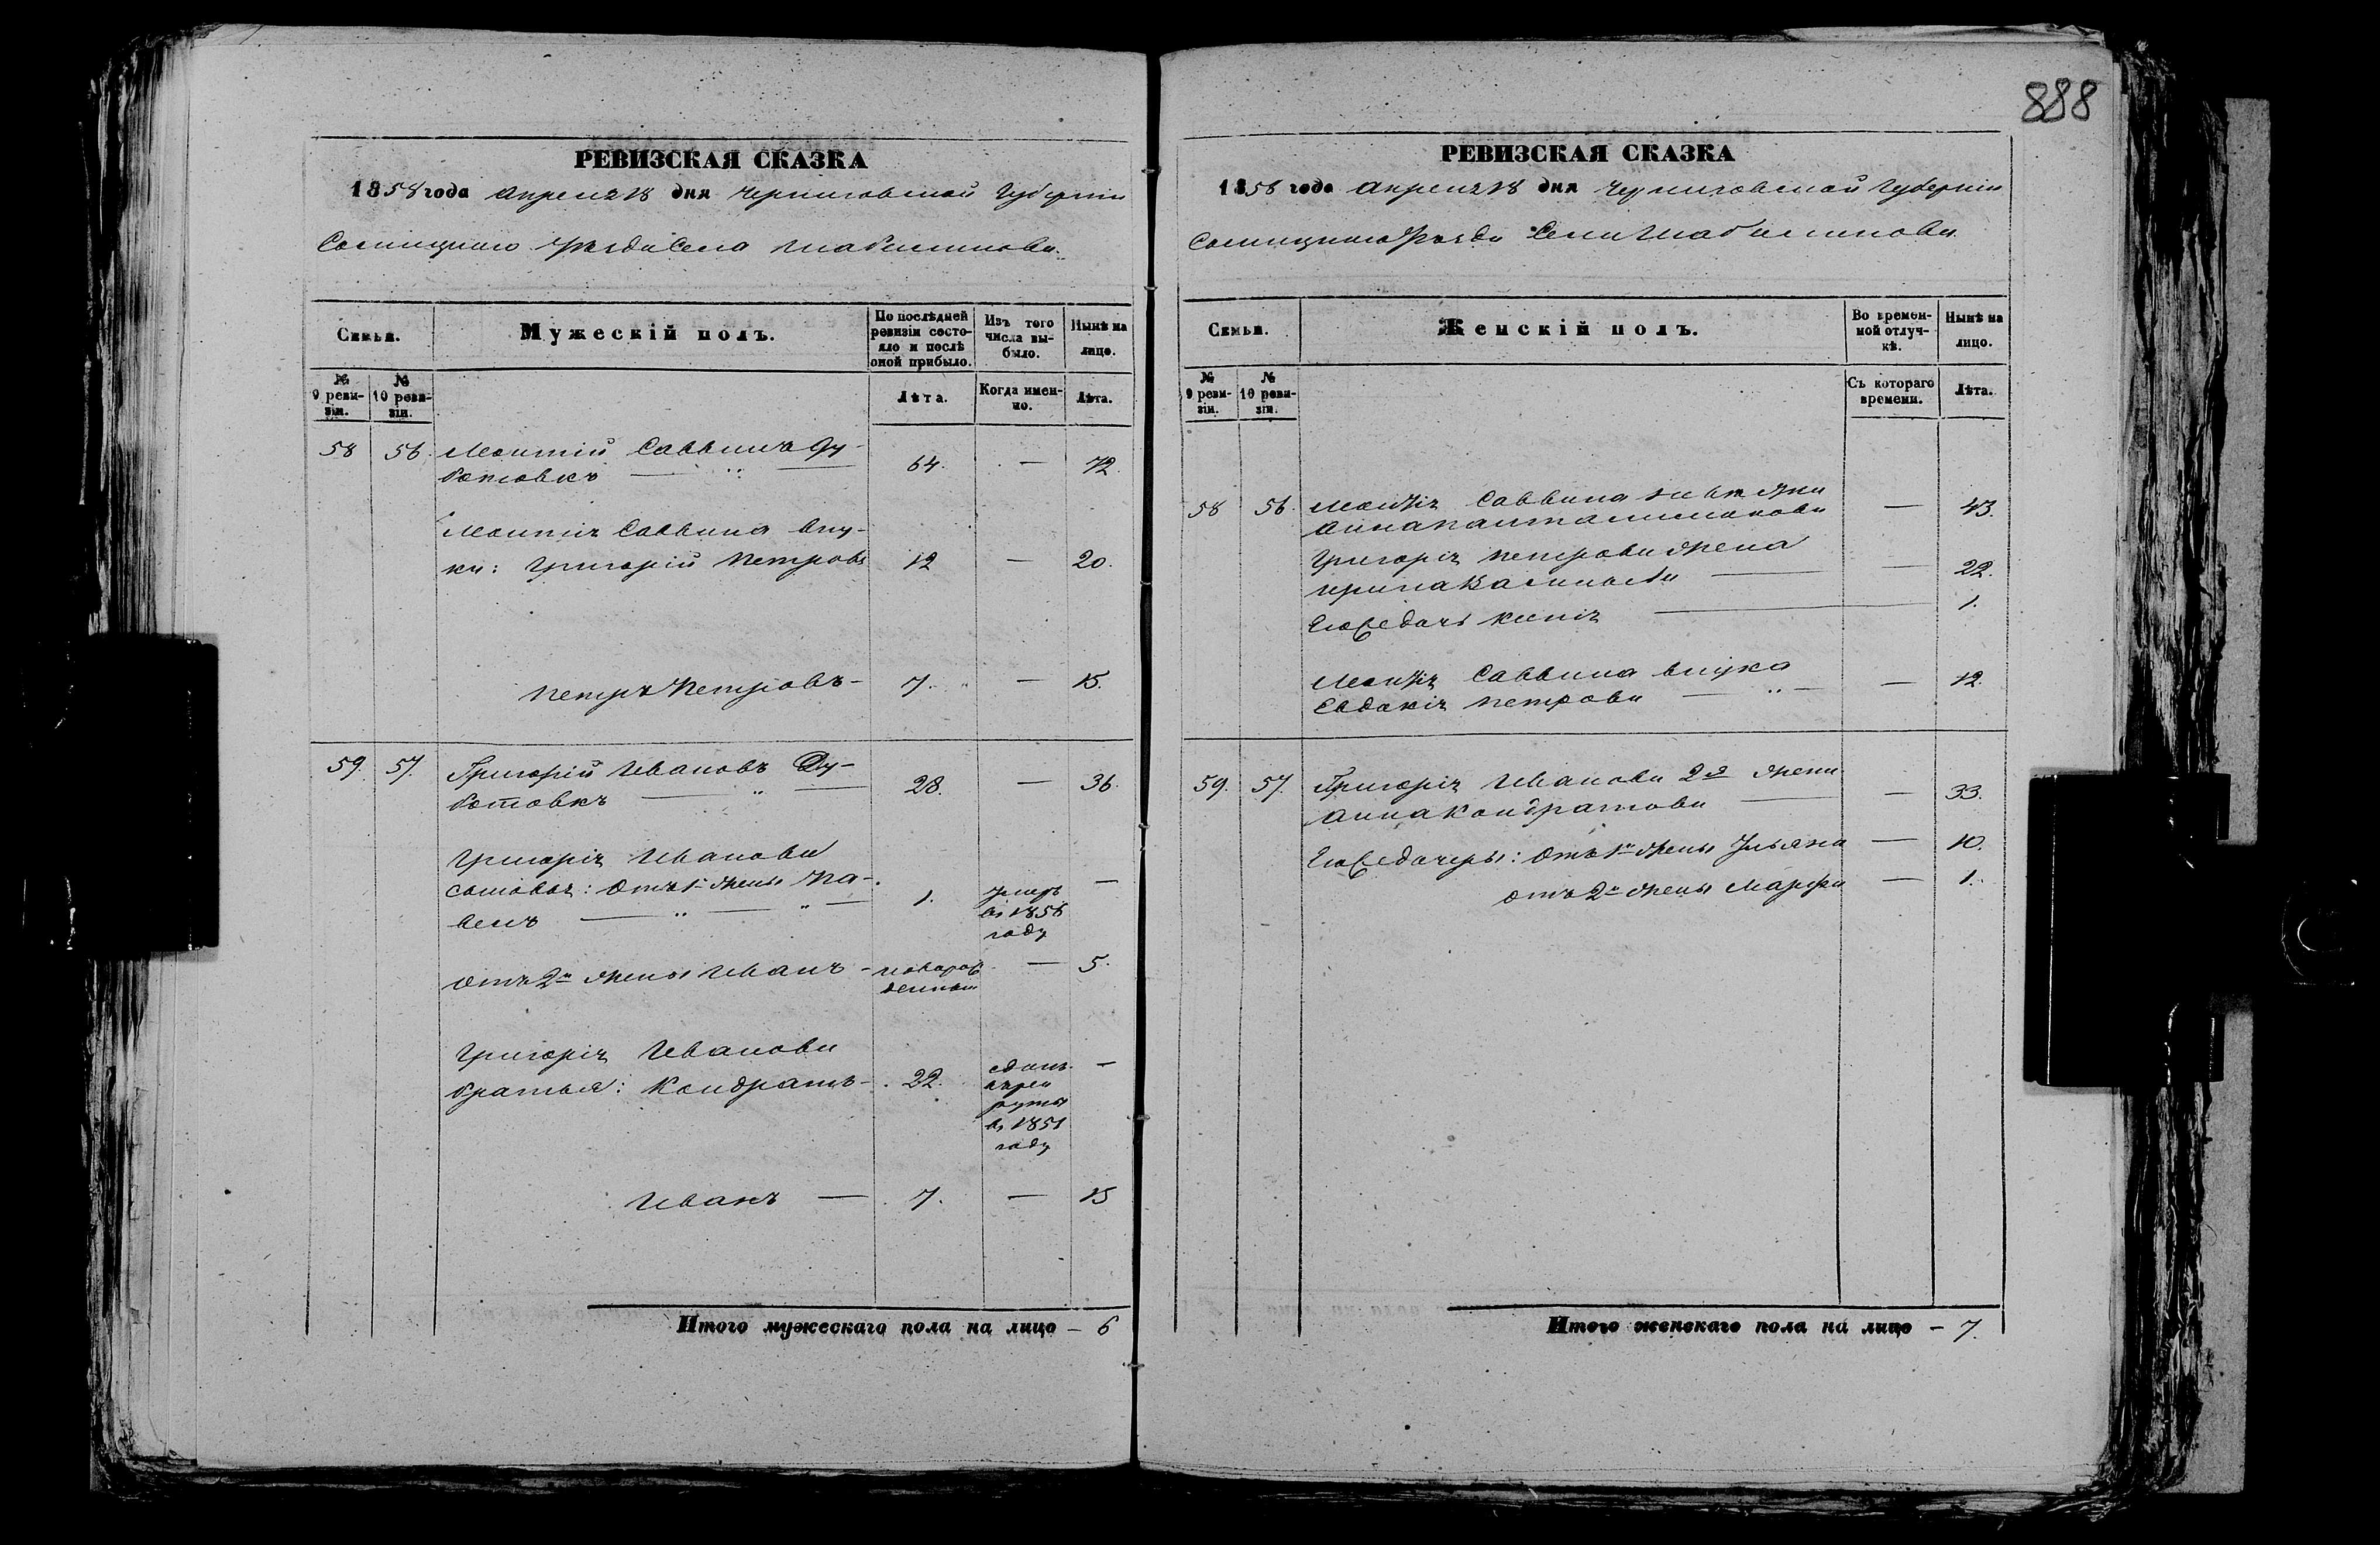 888
РЕВИЗСКАЯ СКАЗКА
1858 года Апреля 18 дня Черниговской Губернiи
Сосницкого Уезда Села Шабалинова
Семьи.
Мужескiй полъ.
По послѣдней ревизiи состояло и послѣ оной прибыло.
Изъ того числа выбыло.
Нынѣ на лицо.
№ 9 ревизiи.
№ 10 ревизiи.
Лѣта.
Когда именно.
Лѣта.
58 56. Леонтiй Саввинъ Ду-
ботовкъ — 64. — 72.
Леонтiя Саввина вну-
ки: Григорiй Петровъ 12 — 20.
Петръ Петровъ — 7. — 15.
59. 57. Григорiй Ивановъ Ду-
ботовкъ — 28. — 36.
Григорiя Иванова
сыновья: отъ 1й жены Па-
велъ — 1. умеръ въ 1856 году —
отъ 2й жены Иванъ - новорож денный — 5.
Григорiя Иванова
братья: Кондратъ - 22. въ рекруты въ 1851 году —
Иванъ — 7. — 15
Итого мужескаго пола на лицо - 6
РЕВИЗСКАЯ СКАЗКА
1858 года Апреля 18 дня Черниговской Губернiи
Сосницкого Уезда Села Шабалинова
Семьи.
Женскiй полъ.
Во времен-
ной отлуч-
кѣ.
Нынѣ на
лицо.
№ 9 ревизiи.
№ 10 ревизiи.
Съ котораго
времени.
Лѣта.
58 56. Леонтiя Саввина
Анна Пантелимонова — 43.
Григорiя Петрова жена
Ирина — 22.
Его дочь 1.
Леонтiя Саввина внука
Евдокiя Петрова — 12.
59. 57. Григорiя Иванова 2я жена
Анна Кондратова — 33.
Его дочеры: отъ 1й жены Ульяна — 10.
отъ 2й жены Марфа — 1.
Итого женскаго пола на лицо - 7.